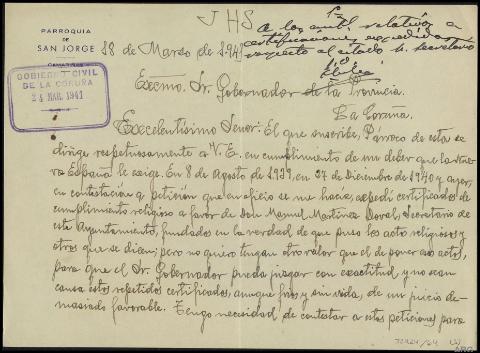 JHS
PARROQUIA
DE
SAN JORGE
CAMARIÑAS
18 de Marzo de 1.941
A los ... relativos a
certificaciones expedidas
respecto al citado Sr. Secretario
GOBIERNO CIVIL
DE LA CORUÑA
24 MAR. 1941
Excmo. Sr. Gobernador de la Provincia
La Coruña.
Excelentísimo Señor: El que suscribe, Párroco de esta se
dirige respetuosamente a V. E. en cumplimiento de un deber que la Nue-
va España le exige. En 8 de Agosto de 1939, en 27 de Diciembre de 1940 y ayer,
en contestación a petición que en oficio se me hacía, expedí certificados de
cumplimiento religioso a favor de Don Manuel Martínez Doval, Secretario de
este Ayuntamiento, fundados en la verdad de que puso los actos religiosos y
otros que se dicen; pero no quiero tengan otro valor que el de poner esos actos,
para que el Sr. Gobernador pueda juzgar con exactitud, y no sean
causa estos repetidos certificados, aunque fríos y sin vida, de un juicio de-
masiado favorable. Tengo necesidad de contestar a estas peticiones para